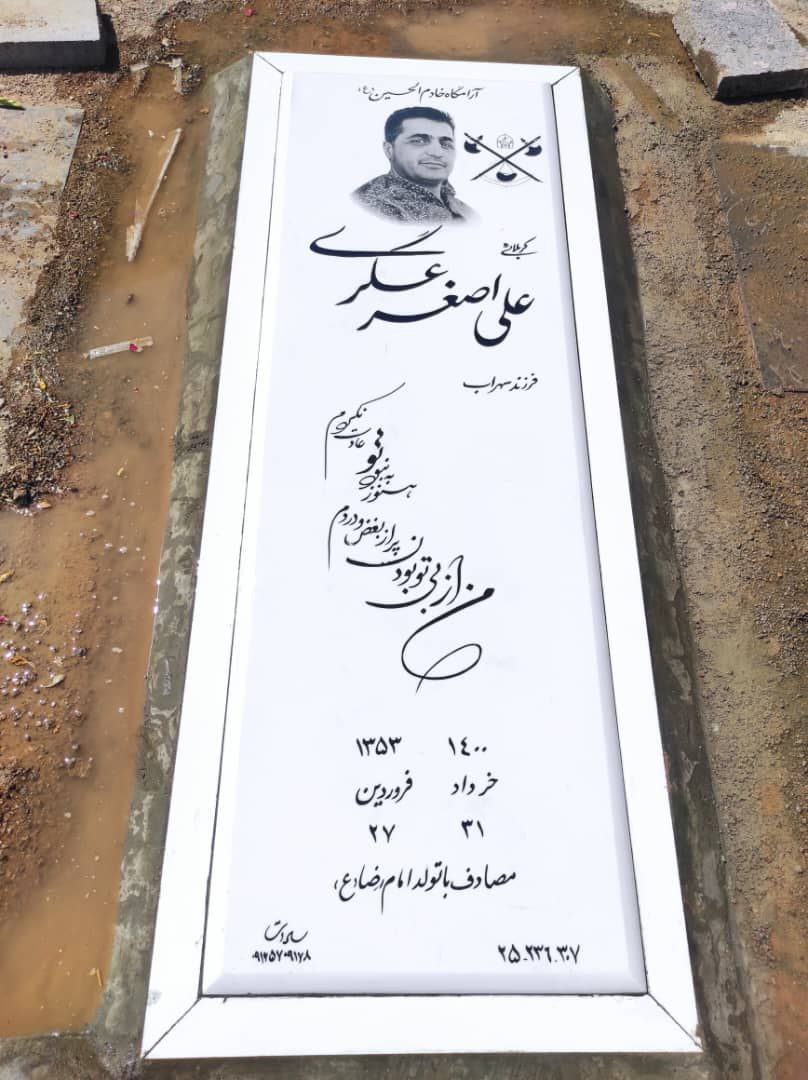 آرامگاه خادم الحسین (ع)
کربلائی
علی اصغر عسگری
فرزند سهراب
هنوز به نبود تو عادت نکردم
من از بی تو بودن پر از بغض و دردم
۱۴۰۰ ۱۳۵۳
خرداد فروردین
۳۱ ۲۷
مصادف با تولد امام رضا (ع)
۲۵-۲۳۶-۳۰۷
۰۹۱۲۵۷۰۹۱۷۸